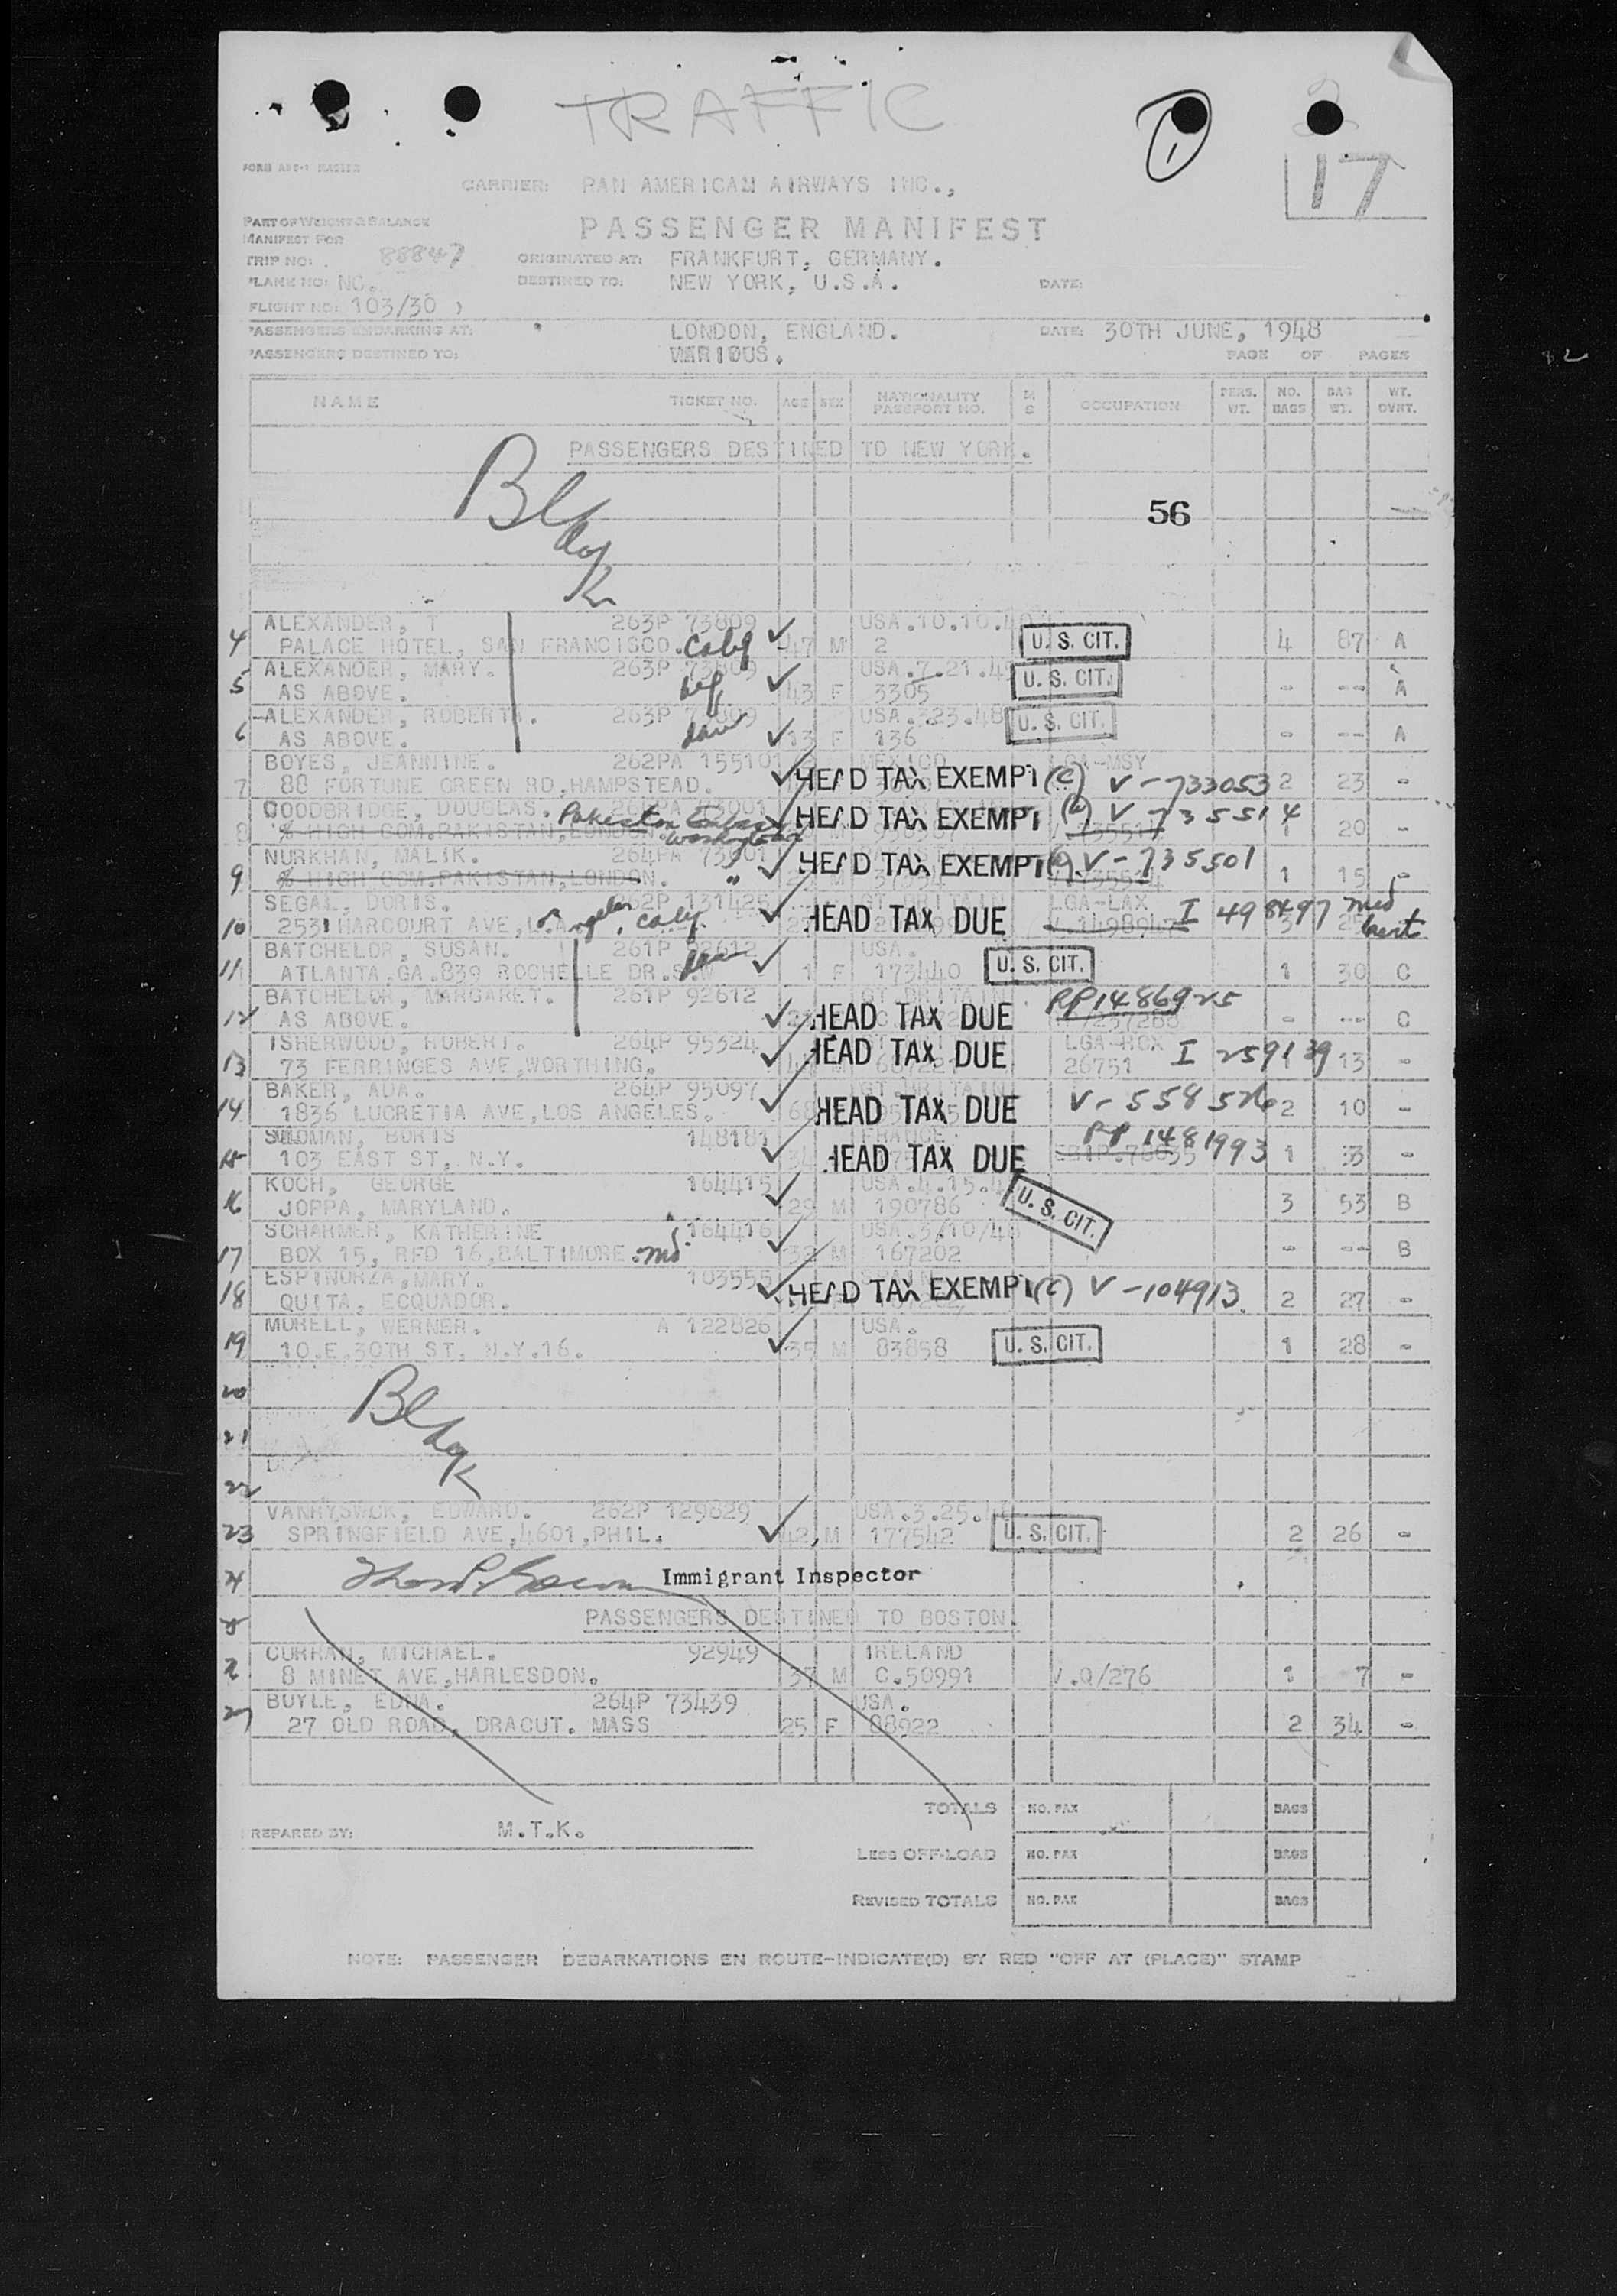 TRAFFIC
1
17
CARRIER: PAN AMERICAN AIRWAYS INC.,
PART OF WEIGHT & BALANCE
MANIFEST FOR
PASSENGER MANIFEST
TRIP NO: 88847
ORIGINATED AT: FRANKFURT, GERMANY.
PLANE NO: NC.
DESTINED TO: NEW YORK, U.S.A. DATE:
FLIGHT NO: 103/30
PASSENGERS EMBARKING AT: LONDON, ENGLAND. DATE: 30TH JUNE, 1948
PASSENGERS DESTINED TO: VARIOUS. PAGE OF PAGES
NAME TICKET NO. AGE SEX NATIONALITY PASSPORT NO. M S OCCUPATION PERS. WT. NO. BAGS BAG WT. WT. OVHT.
PASSENGERS DESTINED TO NEW YORK.
56
ALEXANDER, T 263P 73809 USA.10.10.
4 PALACE HOTEL, SAN FRANCISCO. Calif 47 M 2 U. S. CIT. 4 87 A
ALEXANDER, MARY. 263P 73809 USA.7.21.
5 AS ABOVE. 43 F 3305 U. S. CIT. - -- A
ALEXANDER, ROBERTA. 263P 73809 USA.3.23.48
6 AS ABOVE. 13 F 136 U. S. CIT. - -- A
BOYES, JEANNINE. 262PA 15510 MEXICO LGA-MSY
7 88 FORTUNE GREEN RD, HAMPSTEAD. HEAD TAX EXEMPT (c) V-733053 2 23 -
GOODBRIDGE, DOUGLAS. Pakistan Embassy
8 % HIGH COM.PAKISTAN, LONDON. Washington HEAD TAX EXEMPT V-735514 1 20 -
NURKHAN, MALIK. 264PA
9 % HIGH COM.PAKISTAN, LONDON. " HEAD TAX EXEMPT V-735501 1 15 -
SEGAL, DORIS. 131426 LGA-LAX
10 2531 HARCOURT AVE, Los Angeles, Calif. HEAD TAX DUE I 498497 3
BATCHELOR, SUSAN. 261P 92612 USA.
11 ATLANTA.GA.839 ROCHELLE DR.S.W 1 F 173440 U. S. CIT. 1 30 C
BATCHELOR, MARGARET. 261P 92612 GT BRITAIN RP1486925
12 AS ABOVE. HEAD TAX DUE - --- C
ISHERWOOD, ROBERT. 264P 95324 LGA-BOX
13 73 FERRINGES AVE, WORTHING. HEAD TAX DUE 26751 I 259139 13 -
BAKER, ADA. 264P 95097 GT BRITAIN
14 1836 LUCRETIA AVE, LOS ANGELES. 68 HEAD TAX DUE V-558526 2 10 -
SOLOMAN, BORIS 148181 FRANCE RP 1481993
15 103 EAST ST, N.Y. HEAD TAX DUE 1 33 -
KOCH, GEORGE 164415 USA.4.15.
16 JOPPA, MARYLAND. 29 M 190786 U. S. CIT. 3 53 B
SCHARMER, KATHERINE 164416 USA.3/10/48
17 BOX 15, RFD 16, BALTIMORE. Md. 32 M 167202 - --- B
ESPINORZA, MARY. 103555
18 QUITA, ECQUADOR. HEAD TAX EXEMPT (c) V-104913. 2 27 -
MORELL, WERNER. A 122826 USA.
19 10.E.30TH ST, N.Y.16. 35 M 83858 U. S. CIT. 1 28 -
20
21
22
VANRYSWCK, EDWARD. 262P 129829 USA.3.25.
23 SPRINGFIELD AVE, 4601, PHIL. 42 M 177542 U. S. CIT. 2 26 -
Immigrant Inspector
PASSENGERS DESTINED TO BOSTON.
CURRAN, MICHAEL. 92949 IRELAND
8 MINET AVE, HARLESDON. 37 M C.50991 V.Q/276 1 7 -
BOYLE, EDNA. 264P 73439 USA.
27 27 OLD ROAD, DRACUT. MASS 25 F 88922 2 34 -
TOTALS NO. PAX BAGS
PREPARED BY: M.T.K.
LESS OFF-LOAD NO. PAX BAGS
REVISED TOTALS NO. PAX BAGS
NOTE: PASSENGER DEBARKATIONS EN ROUTE-INDICATE(D) BY RED "OFF AT (PLACE)" STAMP